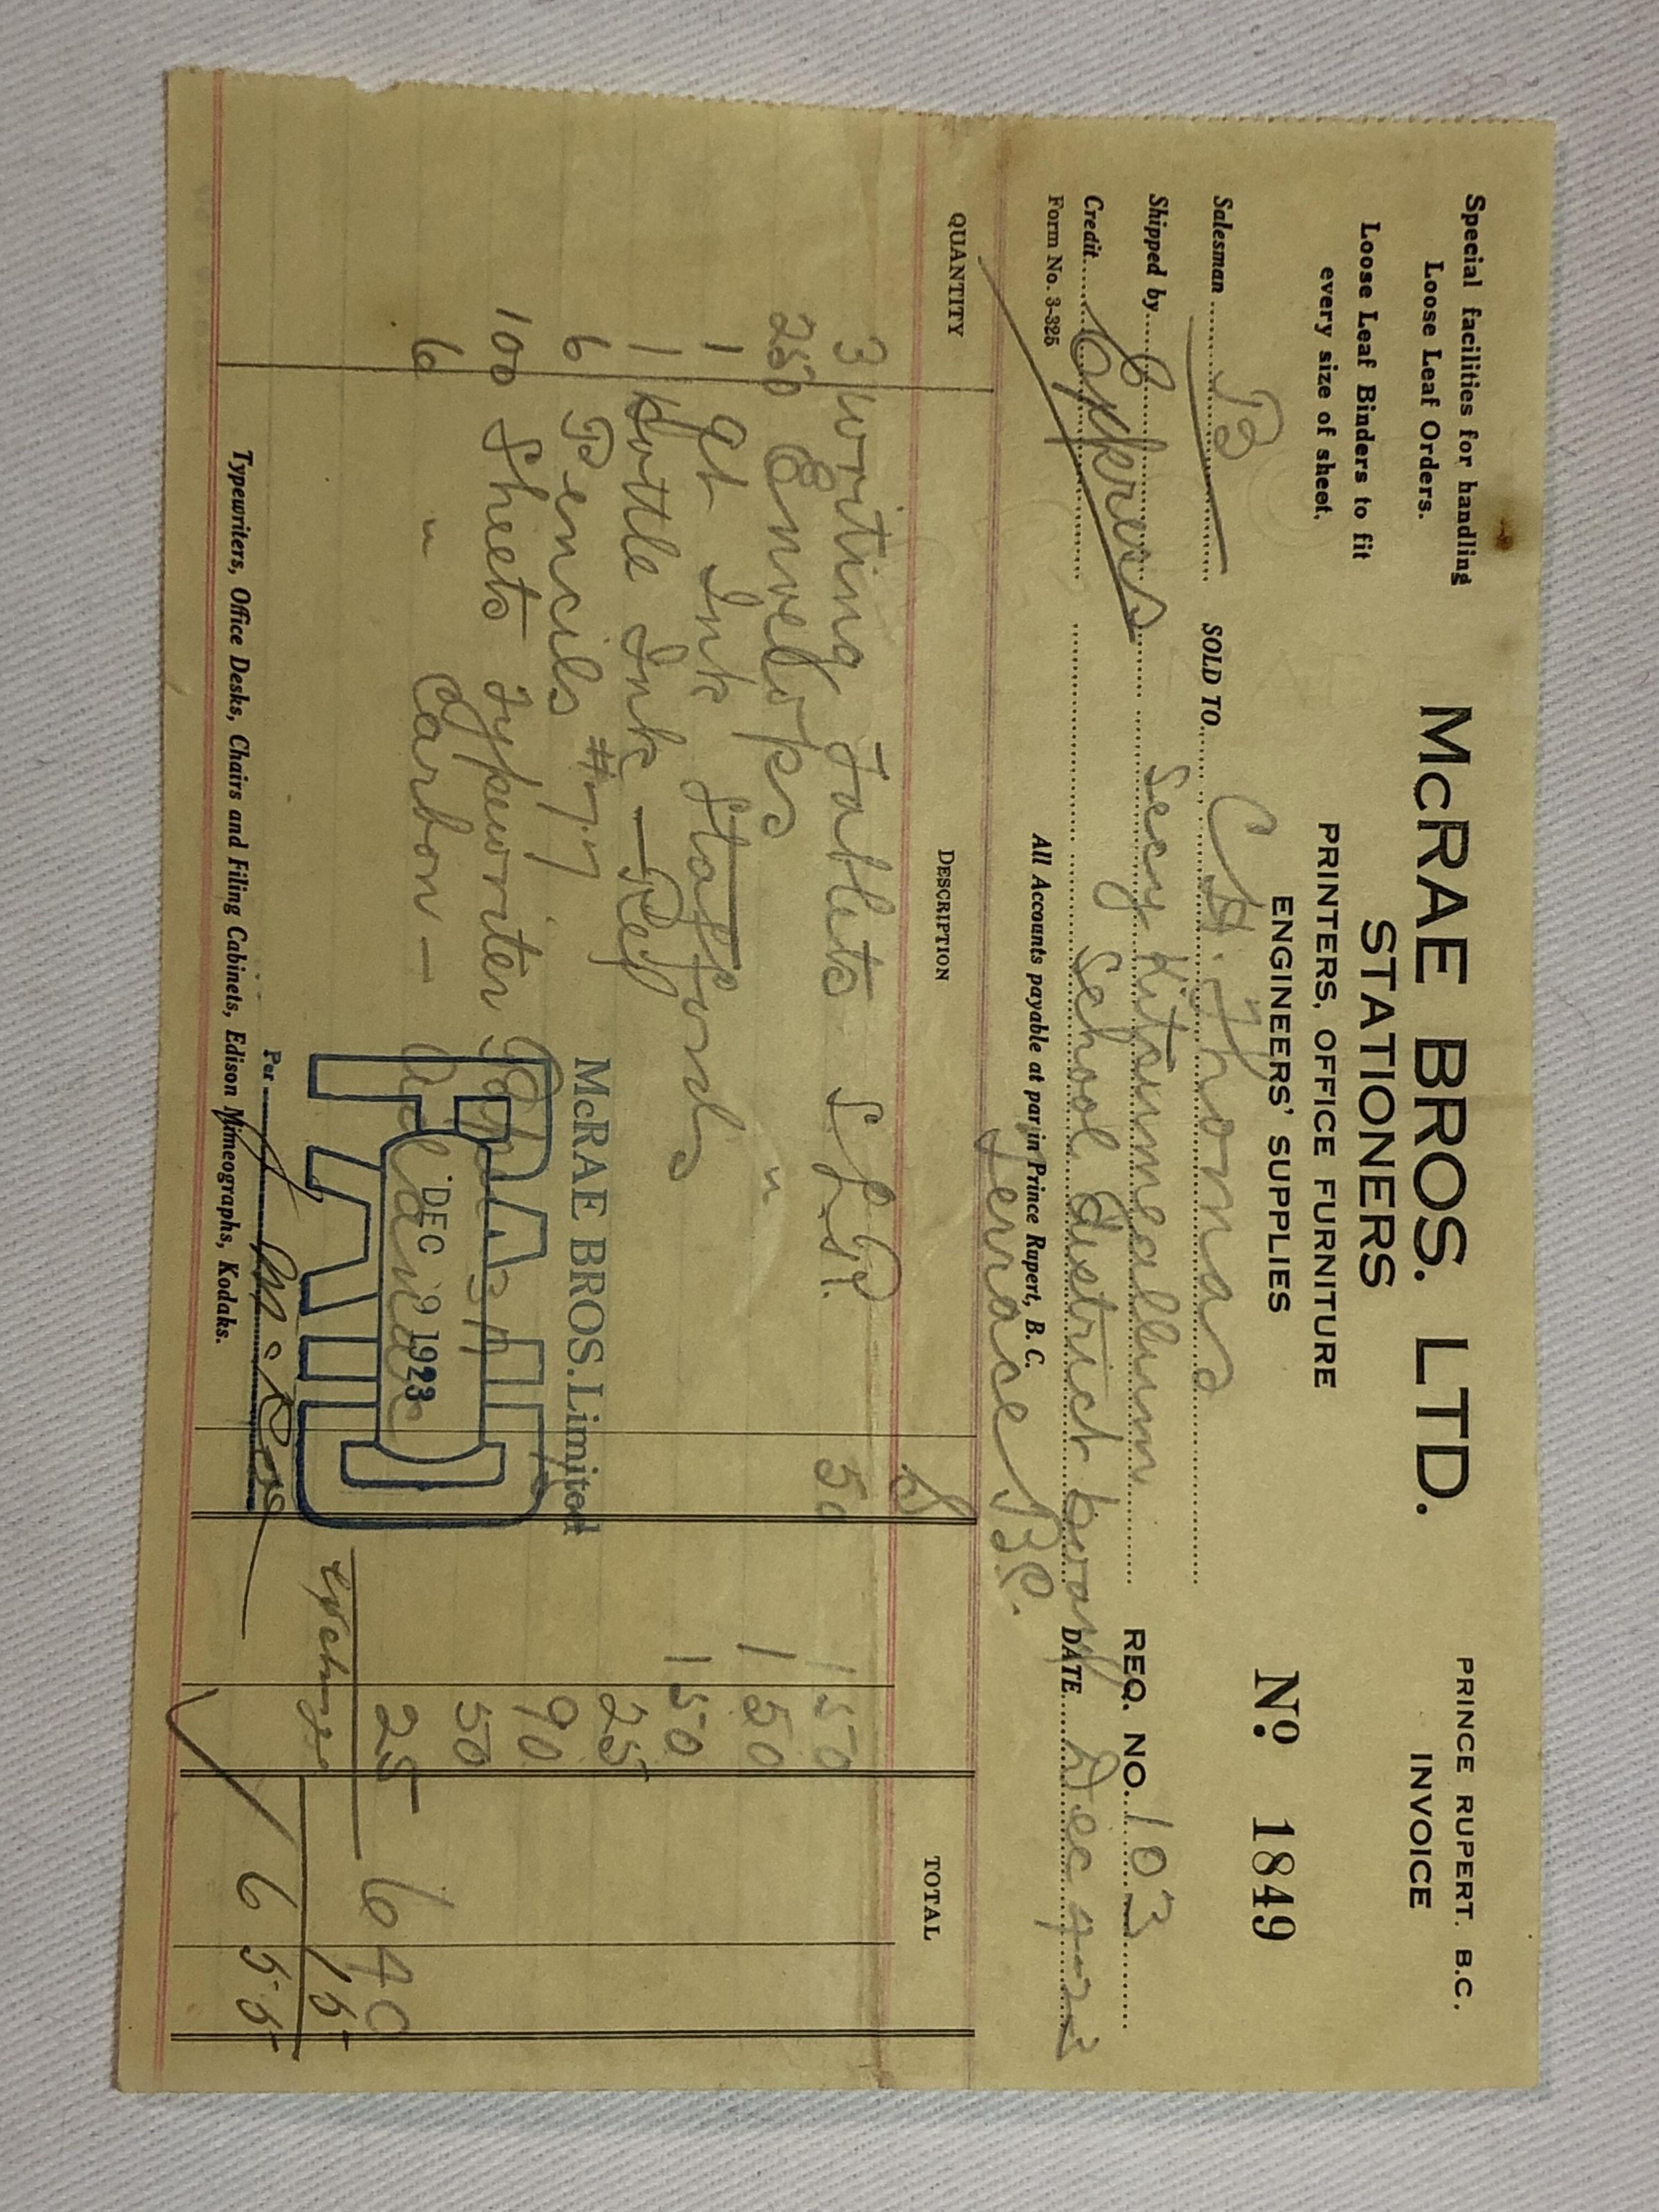 Special facilities for handling
Loose Leaf Orders.
Loose Leaf Binders to fit
every size of sheet.
McRAE BROS. LTD.
STATIONERS
PRINTERS, OFFICE FURNITURE
ENGINEERS' SUPPLIES
PRINCE RUPERT. B.C.
INVOICE
No. 1849
Salesman B
SOLD TO C.H. Thomas
Shipped by Express
Secy Kitsumcallum
REQ. NO. 103
Credit
School district board
DATE Dec
Form No. 3-325
All Accounts payable at par in Prince Rupert, B. C.
Terrace B.C.
QUANTITY DESCRIPTION TOTAL
3 Writing Tablets L.P. 50 1 50
250 Envelopes " 1 50
1 qt Ink Staffords 1 50
1 Bottle Ink — Red 25
6 Pencils #77 90
100 Sheets Typewriter Paper 50
6 " Carbon — 25 6 40
McRAE BROS. Limited
PAID
DEC 9 1923
exchange 15
Per
6 55
Typewriters, Office Desks, Chairs and Filing Cabinets, Edison Mimeographs, Kodaks.